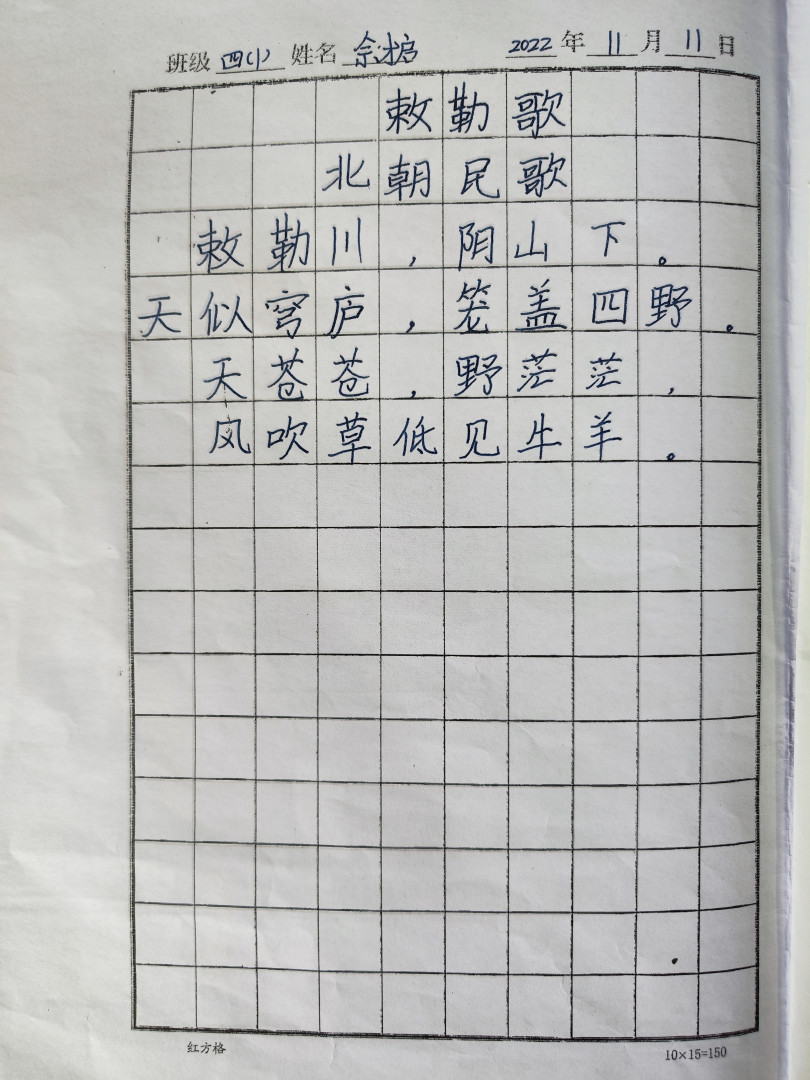 班级 四(1) 姓名 佘沭启 2022 年 11 月 11 日
敕勒歌
北朝民歌
敕勒川,阴山下。
天似穹庐,笼盖四野。
天苍苍,野茫茫,
风吹草低见牛羊。
红方格 10×15=150